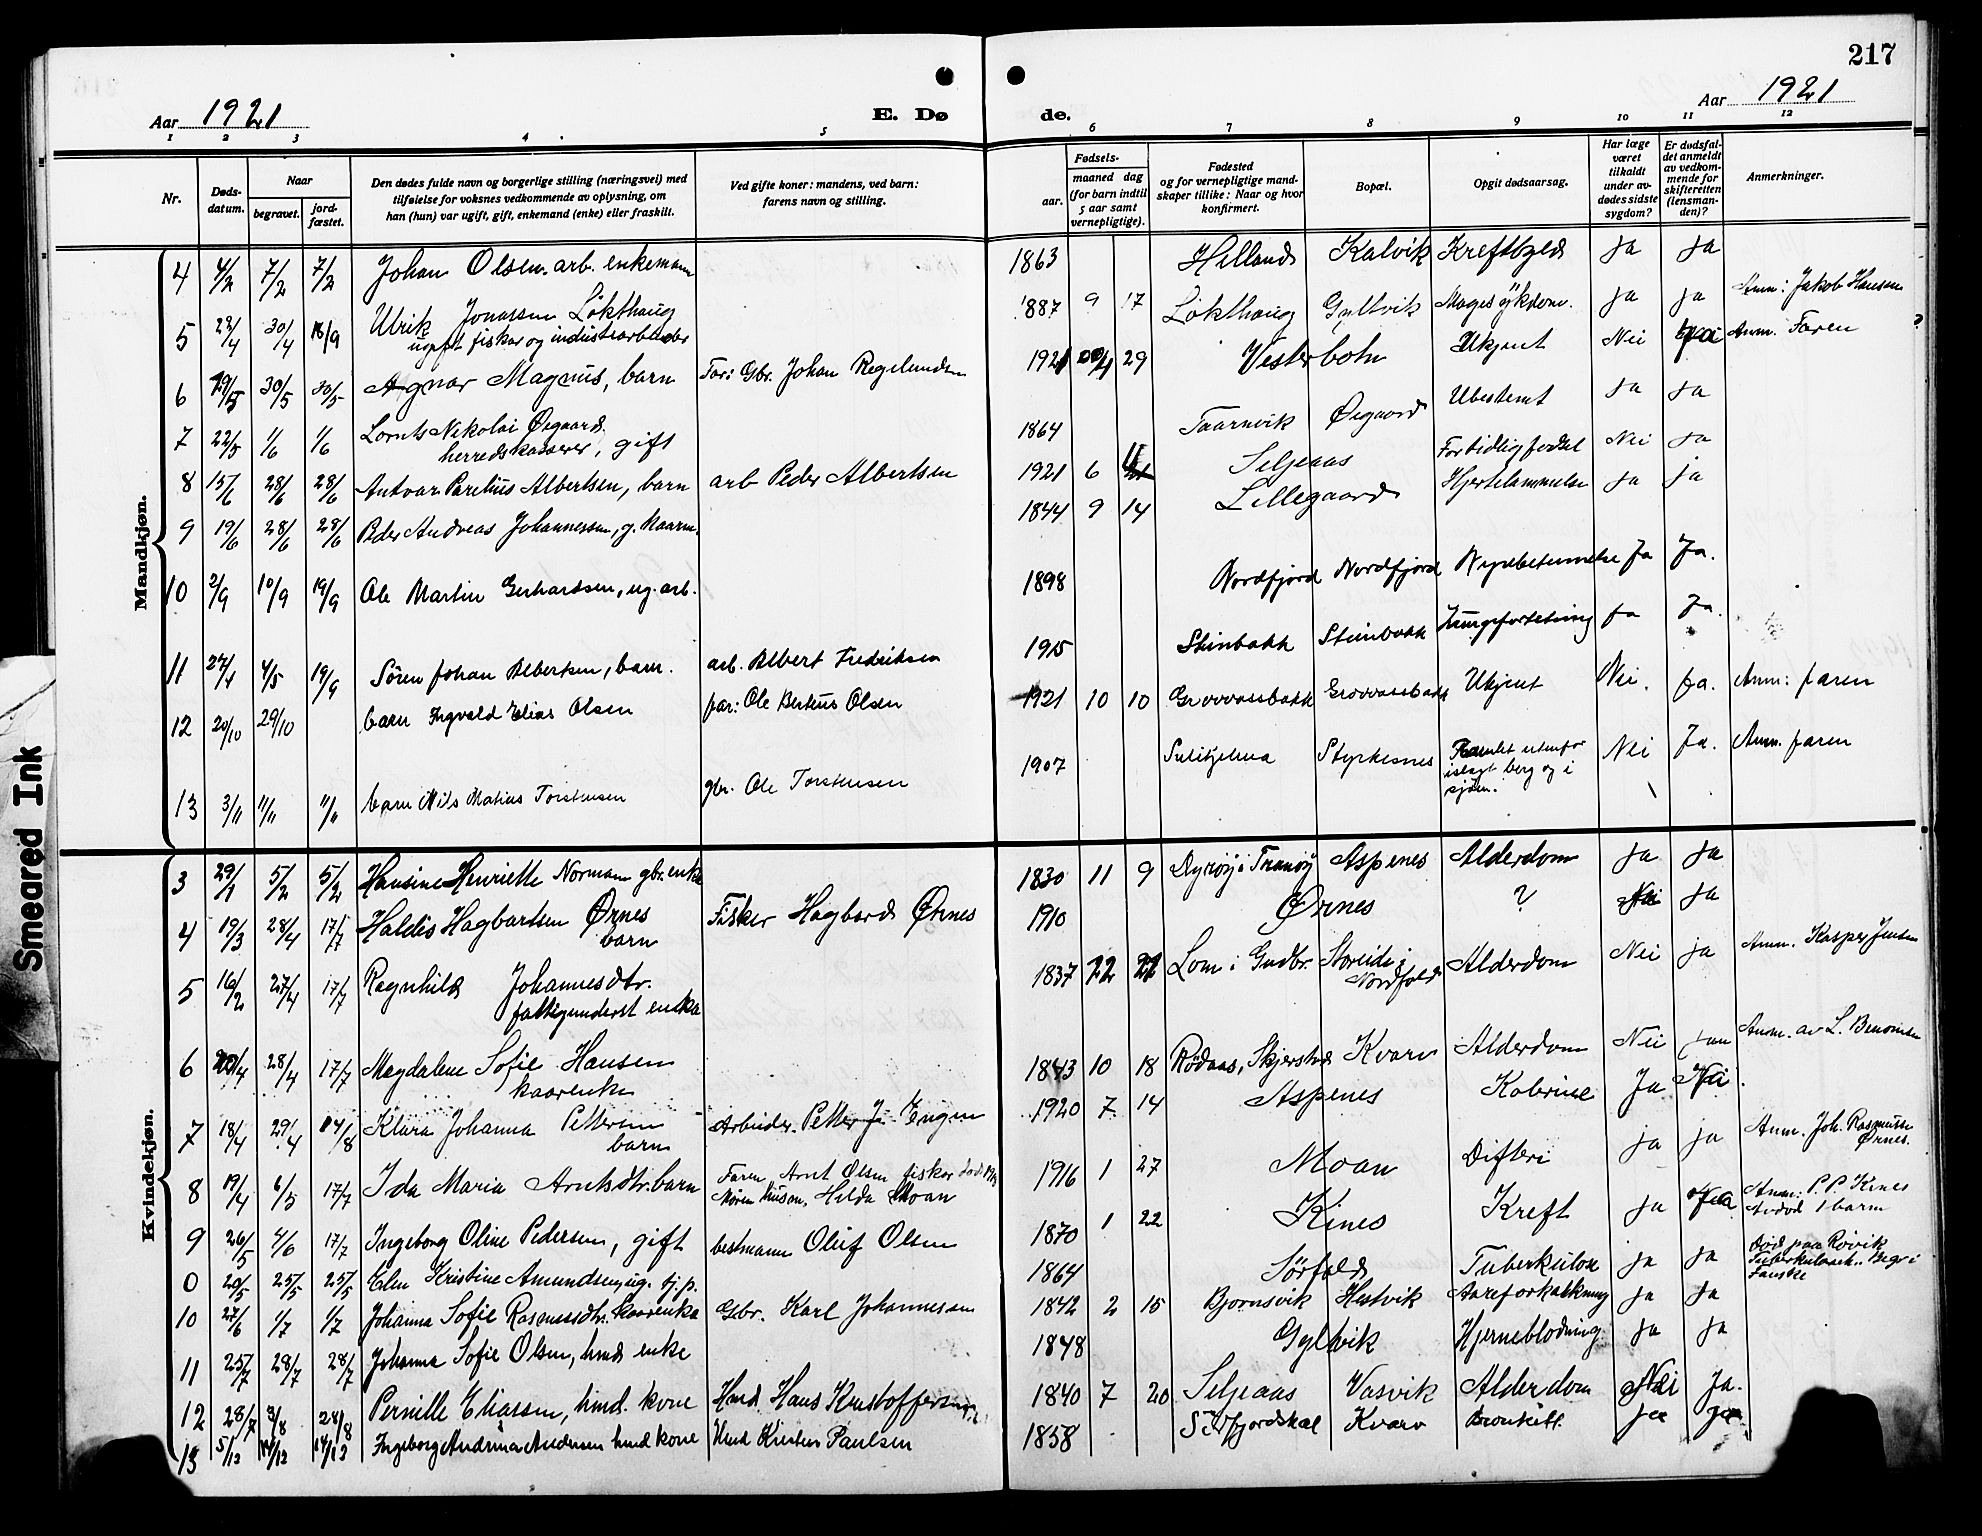 217
Aar 1921
E. Døde.
Aar 1921
1 2 3 4 5 6 7 8 9 10 11 12
Nr.
Døds-
datum.
Naar
begravet.
jord-
fæstet.
Den dødes fulde navn og borgerlige stilling (næringsvei) med
tilføielse for voksnes vedkommende av oplysning, om
han (hun) var ugift, gift, enkemand (enke) eller fraskilt.
Ved gifte koner: mandens, ved barn:
farens navn og stilling.
Fødsels-
aar.
maaned dag
(for barn indtil
5 aar samt
vernepligtige).
Fødested
og for vernepligtige mand-
skaper tillike: Naar og hvor
konfirmert.
Bopæl.
Opgit dødsaarsag.
Har læge
været
tilkaldt
under av-
dødes sidste
sygdom?
Er dødsfal-
det anmeldt
av vedkom-
mende for
skifteretten
(lensman-
den)?
Anmerkninger.
Mandkjøn.
4 4/2 7/2 7/2 Johan Olsen. arb. enkemann 1863 Helland Kalvik Kreftbyld ja ja
5 22/4 30/4 18/9 Ulrik Jonassen Løkthaug 1887 9 17 Løkthaug Gyltvik Magesykdom. ja ja Anm: Jakob Hansen
ugift fisker og industriarbeider
6 19/5 30/5 30/5 Agnar Magnus, barn Far: Gbr. Johan Regelundsen 1921 4 29 Vesterbotn Ukjent Nei ja Anm. Faren
7 22/5 1/6 1/6 Lornts Nikolai Øigaard, 1864 Taarnvik Øigaard Ubestemt ja ja
herredskasserer, gift
8 15/6 28/6 28/6 Antvar Parelius Albertsen, barn arb Peder Albertsen 1921 6 11 Seljeaas Fortidlig fødsel Nei ja
9 19/6 28/6 28/6 Peder Andreas Johannessen, g. kaarm. 1844 9 14 Lillegaard Hjertelammelse ja ja
10 2/9 10/9 19/9 Ole Martin Gerhardsen, ug. arb. 1898 Nordfjord Nordfjord Nyrebetennelse Ja Ja.
11 27/4 4/5 19/9 Søren Johan Albertsen, barn. arb. Albert Fredriksen 1915 Steinbakk Steinbakk Lungefortetning ja Ja.
12 20/10 29/10 barn Ingvald Elias Olsen far: Ole Berteus Olsen 1921 10 10 Grovvassbakk Grovvassbakk Ukjent Nei. ja. Anm: faren
13 3/11 11/11 11/11 barn Nils Matias Torstensen gbr. Ole Torstensen 1907 Sulitjelma Styrkesnes Ramlet utenfor Nei Ja. Anm. faren
islagt berg og i
sjøen.
Kvindekjøn.
3 29/1 5/2 5/2 Hansine Henriette Normann gbr. enke 1830 11 9 Dyrøy i Tranøy Aspenes Alderdom ja ja
4 19/3 28/4 17/7 Haldis Hagbartsen Ørnes Fisker Hagbard Ørnes 1910 Ørnes ? Nei ja
barn
5 16/2 27/4 17/7 Ragnhild Johannesdtr. 1837 22 Lom i Gudbr. Storeide i Alderdom Nei ja Anm. Kasper Jensen
fattigunderst enke Nordfold
6 20/4 28/4 17/7 Magdalene Sofie Hansen 1843 10 18 Rødaas, Skjerstad Kvarv Alderdom Nei jaa Anm. av L. Benoniesen
kaarenke
7 18/4 29/4 14/8 Klara Johanna Pettersen Arbeider. Petter J. Engen 1920 7 14 Aspenes Kolerine Ja Nei
barn
8 19/4 6/5 17/7 Ida Maria Arntsdtr. barn Faren Arnt Olsen fisker død 1919 1916 1 27 Moan Difteri ja ja Anm. Joh. Rasmussen
Moren Husm. Hilda Moan Ørnes.
9 26/5 4/6 17/7 Ingeborg Oline Pedersen, gift bestmann Oluf Olsen 1870 1 22 Kines Kreft ja ja Anm: P. P. Kines
Avdød 1 barn
0 20/5 25/5 25/5 Elen Kristine Amundsen, ug. tj.p. 1864 Sørfold Tuberkulose ja ja Død paa Røsvik
Tuberkulosehj. Begr i
Fauske
10 27/6 1/7 1/7 Johanna Sofie Rasmussdtr. kaarenke Gbr. Karl Johannesen 1842 2 15 Bjørnsvik Hestvik Aareforkalkning ja ja
11 25/7 28/7 28/7 Johanna Sofie Olsen, hmds enke 1848 Gyltvik Hjerneblødning ja ja
12 28/7 3/8 28/8 Pernille Eliassen, hmd. kone Hmd. Hans Kristoffersen 1840 7 20 Seljeaas Vasvik Alderdom Nei Ja.
13 5/12 14/12 14/12 Ingeborg Andrina Andersen hmd kone Hmd Kristen Paulsen 1858 Sørfjordskal Kvarv Bronkitt. ja ja
Smeared Ink